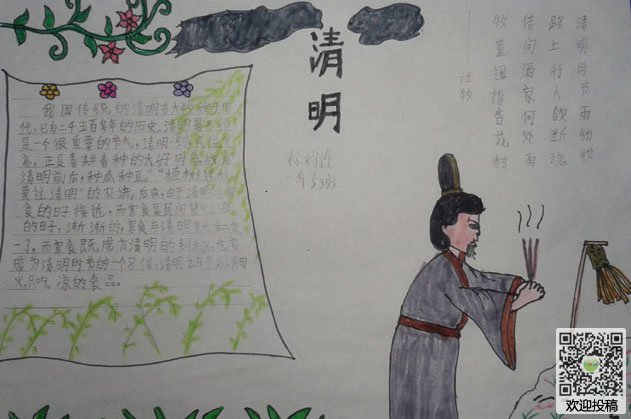 清明
清明时节雨纷纷
路上行人欲断魂
借问酒家何处有
牧童遥指杏花村
牧
我国传统的清明节大约始于周
代,已有二千五百多年的历史。清明最开始
是一个很重要的节气,清明一到,气温升
高,正是春耕春种的大好时节,故有"
清明前后,种瓜种豆。""植树造林,
莫过清明"的农谚。后来,由于清明与寒
食的日子接近,而寒食是民间禁火扫墓
的日子,渐渐的,寒食与清明就合二为一
了,而寒食既成为清明的别称,也变
成为清明时节的一个习俗,清明之日不动烟
火,只吃凉的食品。
欢迎投稿